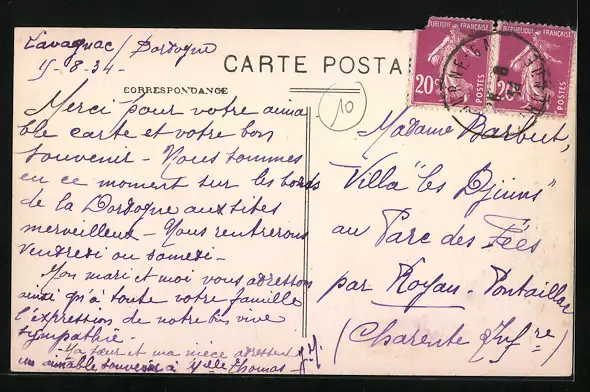 Lavagnac / Dordogne
15-8-34-
CARTE POSTA
CORRESPONDANCE
10
RÉPUBLIQUE FRANÇAISE
20c
POSTES
RÉPUBLIQUE FRANÇAISE
20c
POSTES
Merci pour votre aima
ble carte et votre bon
souvenir - Nous sommes
en ce moment sur les bords
de la Dordogne aux sites
merveilleux - Nous rentrerons
vendredi ou samedi -
Mon mari et moi vous adressons
ainsi qu'à toute votre famille
l'expression de notre très vive
sympathie -
Ma sœur et ma nièce adressent
un aimable souvenir à Melle Thomas -
Madame Barbut,
Villa "les Djinns"
au Parc des Fées
par Royan - Pontaillac
(Charente Infre)